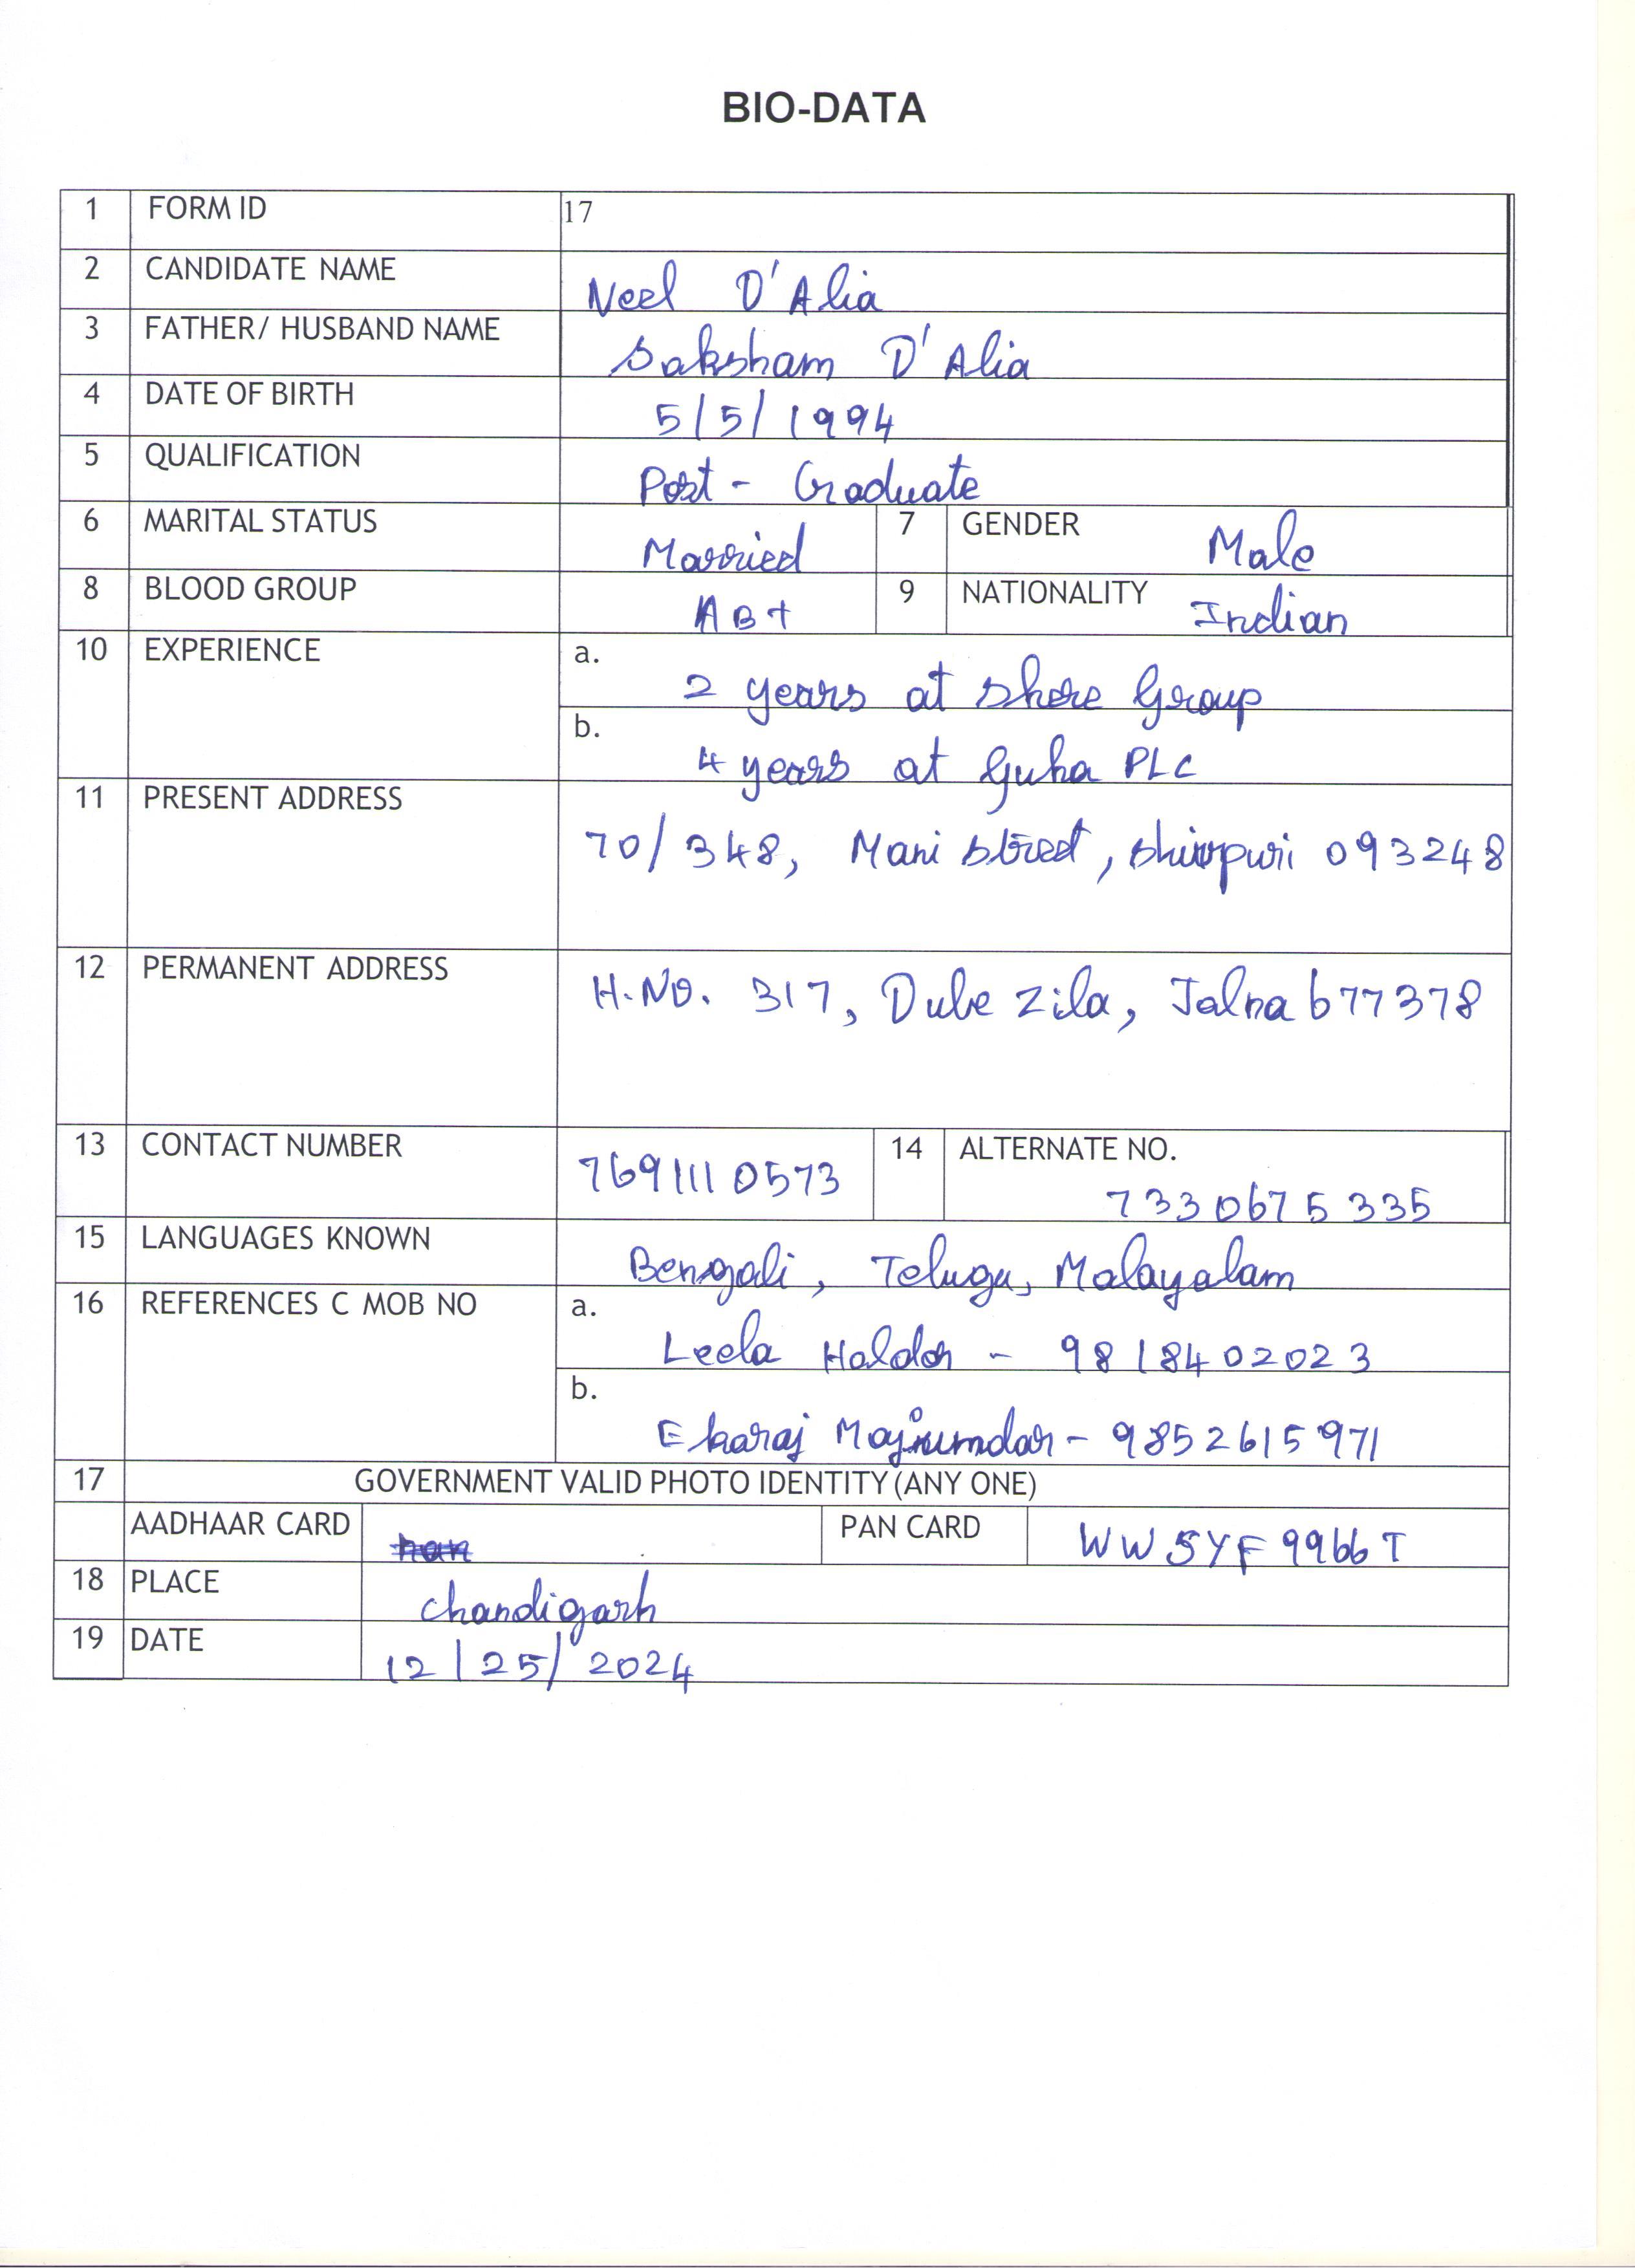 BIO-DATA
1 FORM ID 17
2 CANDIDATE NAME Neel D'Alia
3 FATHER/ HUSBAND NAME Saksham D'Alia
4 DATE OF BIRTH 5/5/1994
5 QUALIFICATION Post - Graduate
6 MARITAL STATUS Married 7 GENDER Male
8 BLOOD GROUP AB+ 9 NATIONALITY Indian
10 EXPERIENCE a. 2 years at Shore Group
b. 4 years at Guha PLC
11 PRESENT ADDRESS 70/348, Mani Street, Shivpuri 093248
12 PERMANENT ADDRESS H.No. 317, Dube Zila, Jalna 677378
13 CONTACT NUMBER 7691110573 14 ALTERNATE NO.
7330675335
15 LANGUAGES KNOWN Bengali, Telugu, Malayalam
16 REFERENCES C MOB NO a. Leela Haldar - 9818402023
b. Ekaraj - 9852615971
17 GOVERNMENT VALID PHOTO IDENTITY (ANY ONE)
AADHAAR CARD PAN CARD WWSYF9966T
18 PLACE Chandigarh
19 DATE 12/25/2024